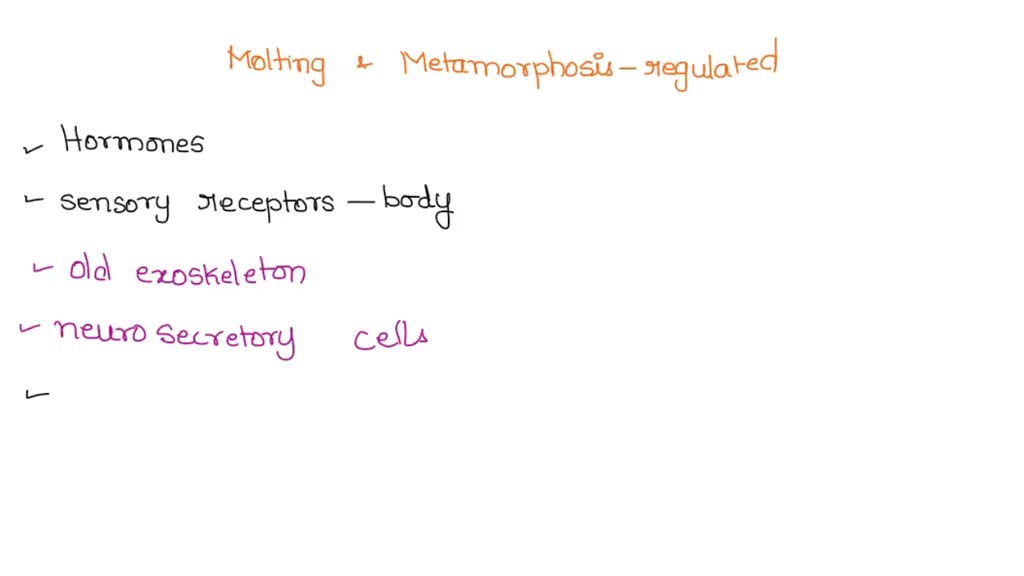 Molting & Metamorphosis - regulated
✓ Hormones
✓ sensory receptors - body
✓ old exoskeleton
✓ neuro secretory cells
✓